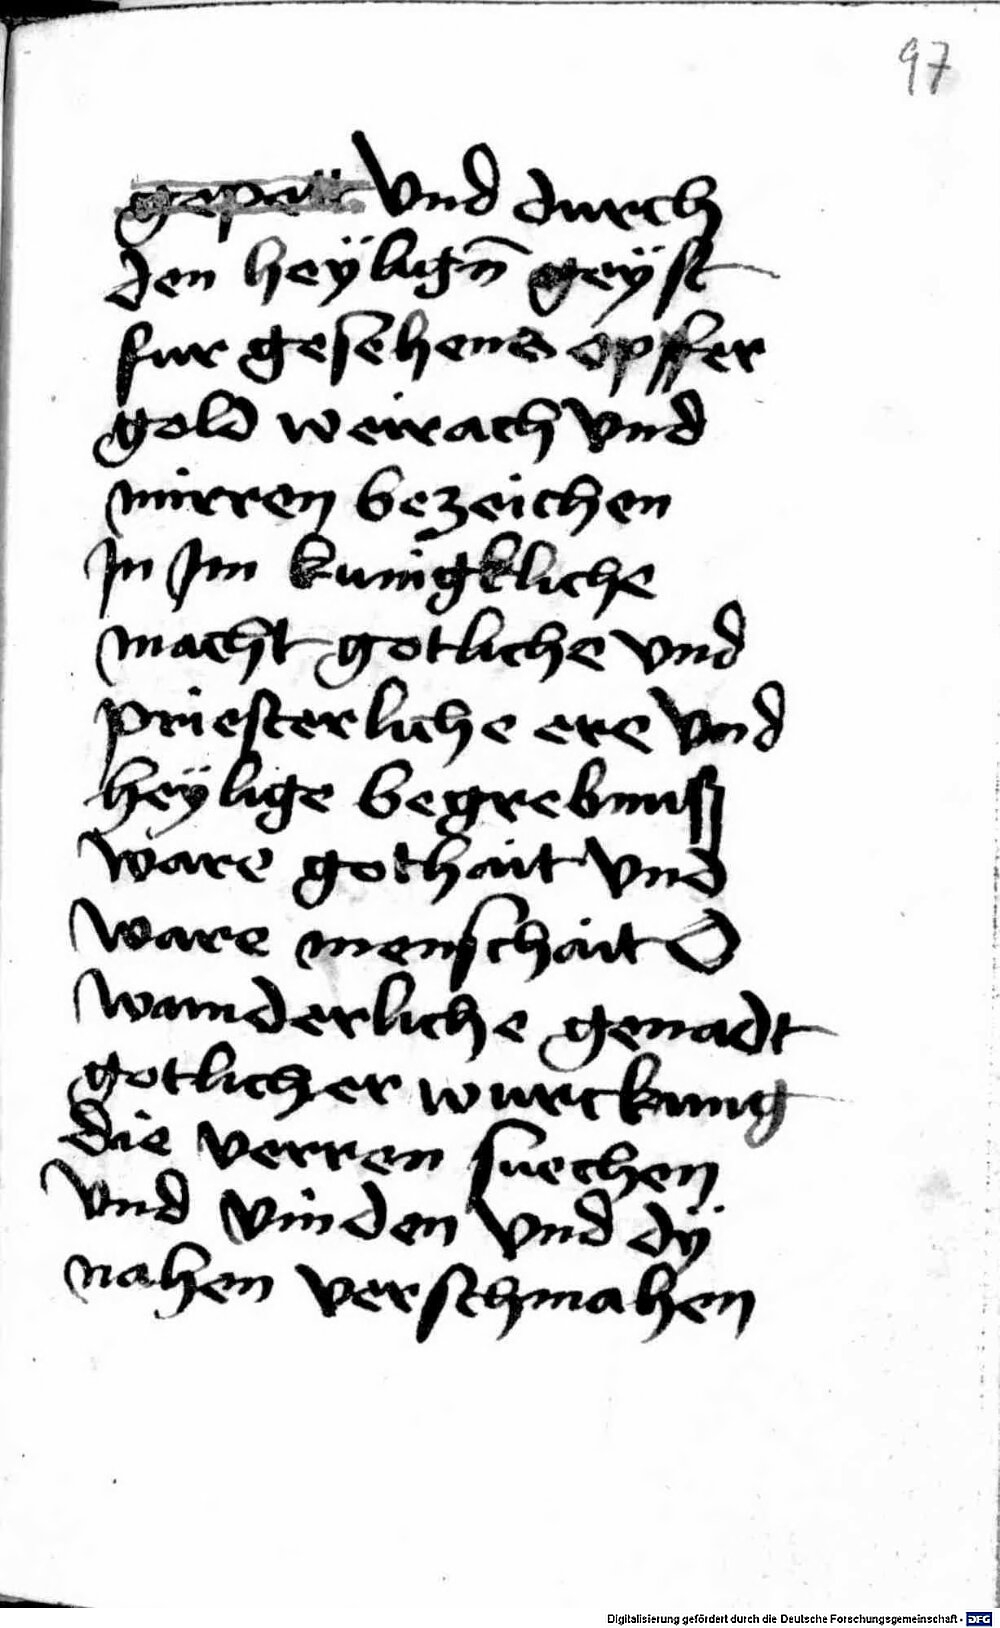 97
Vnd durch
den heÿlign̄ geÿst
fur gesehene opffer
gold weirach Vnd
mirren bezeichen
Jn Jm kunigkliche
macht gotliche vnd
priesterliche ere Vnd
heÿlige begrebnuß
Ware gothait Vnd
Ware menschait O
Wunderliche genadt
gotlicher wurckung
die verren suechen
Vnd vinden Vnd dÿ
nahen verschmahen
Digitalisierung gefördert durch die Deutsche Forschungsgemeinschaft - DFG